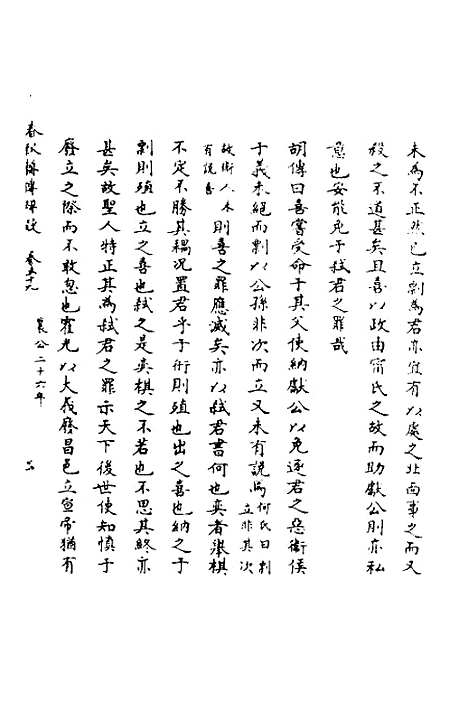 未為不正然已立剽為君亦宜有以處之北面事之而又
殺之不道甚矣且喜以政由甯氏之故而助獻公則亦私
意也安能免于弒君之罪哉
胡傳曰喜嘗受命于其父使納獻公以免逐君之惡衛侯
于義未絕而剽以公孫非次而立又未有說 何氏曰剽立非其次
故衛人未有說喜 則喜之罪應減矣亦以弒君書何也奕者舉棋
不定不勝其耦況置君乎于術則殖也出之喜也納之于
剽則殖也立之喜也弒之是奕棋之不若也不思其終亦
甚矣故聖人特正其為弒君之罪示天下後世使知慎于
廢立之際而不敢忽也霍光以大義廢昌邑立宣帝猶有
春秋 卷五十九
襄公二十六年